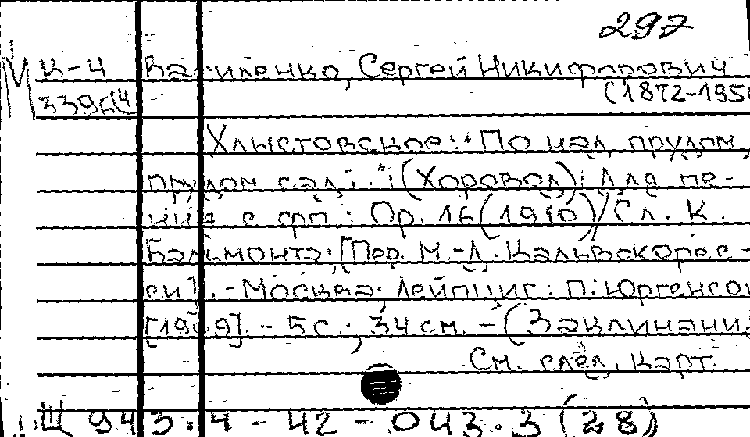 297
М К-4 Василенко, Сергей Никифорович
339а/4 (1872-195
Хлыстовское: "По над прудом,
прудом сад..": (Хоровод): Для пе-
ния с фп.: Op. 16 (1910)/Сл. К.
Бальмонта; [Пер. М.-Д. Кальвокорес-
си]. - Москва; Лейпциг: П. Юргенсон
[1909]. - 5 с.; 34 см. - (Заклинани
См. след. карт.
Щ 943.4 - 42 - 043.3 (28)